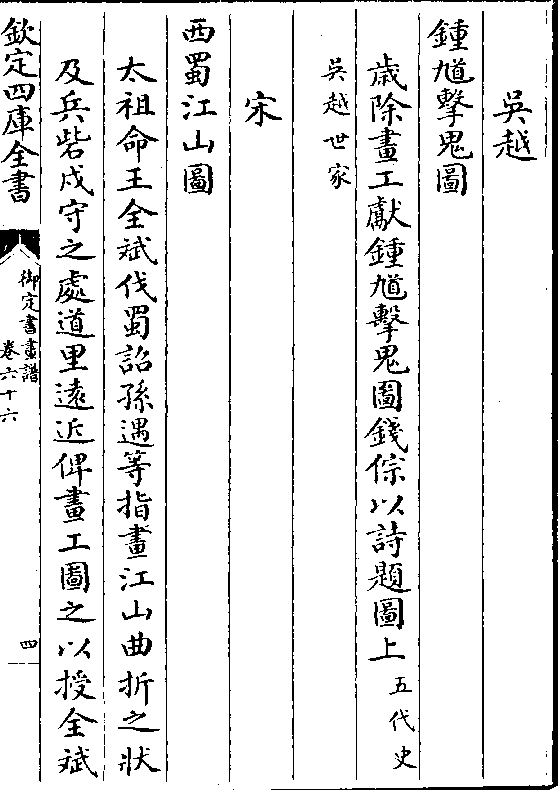 吳越
鍾馗擊鬼圖
歳除畫工獻鍾馗擊鬼圖錢倧以詩題圖上五代史
吳越世家
宋
西蜀江山圖
太祖命王全斌伐蜀詔孫遇等指畫江山曲折之狀
及兵砦戍守之處道里遠近俾畫工圖之以授全斌
欽定四庫全書
御定書畫譜
卷六十六
四